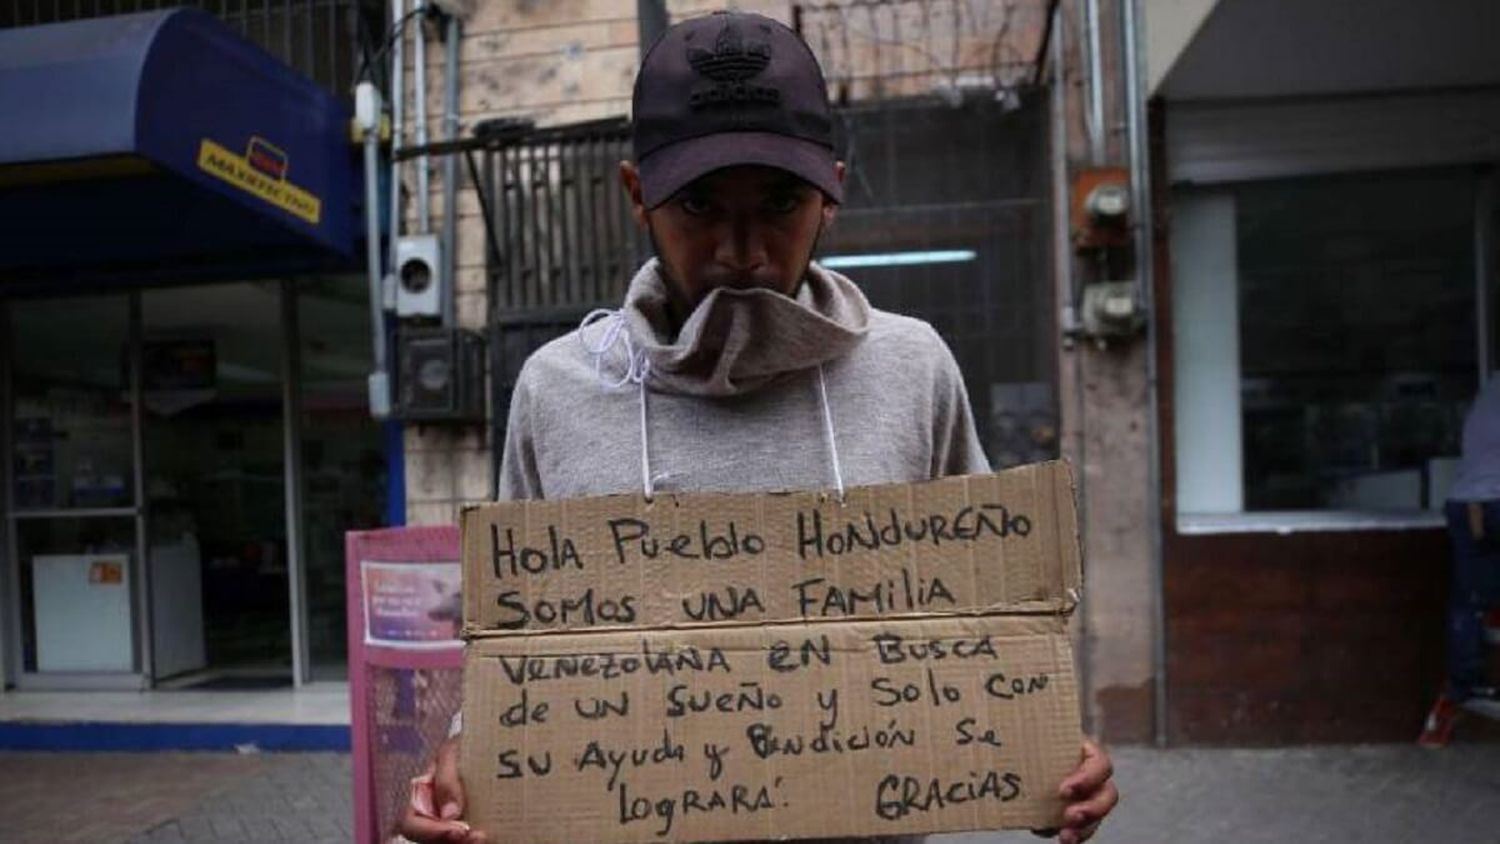 adidas
MAXIEFECTIVO
HOLA PUEBlO HONDUREÑO
SOMOS UNA FAMiLiA
VENEZOlANA EN BUSCA
de UN SUEÑO y Solo CON
SU AYuda y BENdiCIÓN Se
logRARÁ! GRACiAS